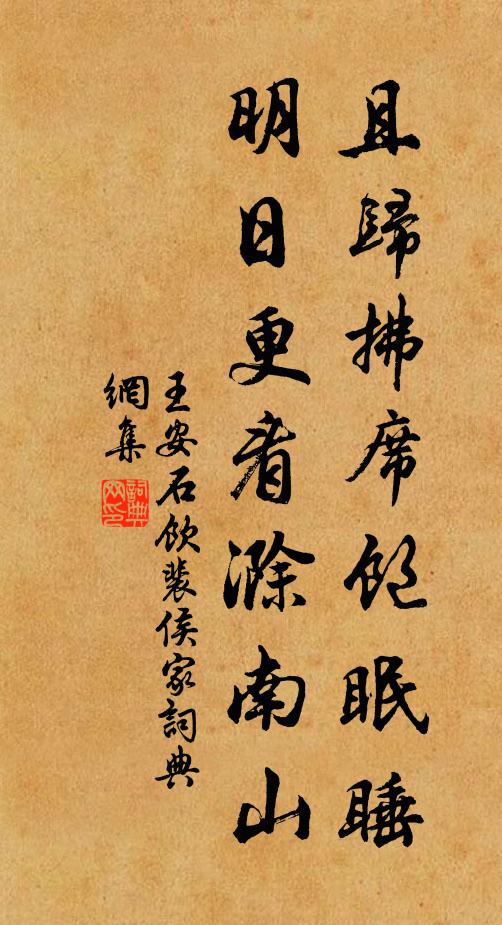 且歸拂席飽眠睡
明日更看滁南山
王安石飲裴侯家詞典
網集
詞典網印